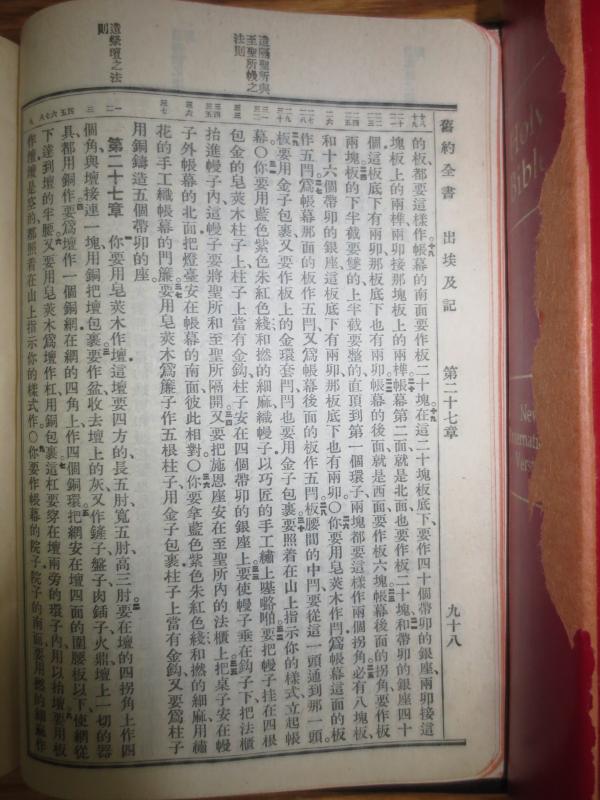 舊約全書 出埃及記 第二十七章 九十八
的板都要這樣作帳幕的南面要作板二十塊在這二十塊板底下要作四十個帶卯的銀座兩卯接這
塊板上的兩榫兩卯接那塊板上的兩榫帳幕第二面就是北面也要作板二十塊和帶卯的銀座四十
個這板底下有兩卯那板底下也有兩卯帳幕的後面就是西面要作板六塊帳幕後面的拐角要作板
兩塊板的下半截要雙的上半截要整的直頂到第一個環子兩塊都要這樣作兩個拐角必有八塊板
和十六個帶卯的銀座這板底下有兩卯那板底下也有兩卯○你要用皂莢木作閂爲帳幕這面的板
作五閂爲帳幕那面的板作五閂又爲帳幕後面的板作五閂板腰間的中閂要從這一頭通到那一頭
板要用金子包裹又要作板上的金環套閂閂也要用金子包裹要照着在山上指示你的樣式立起帳
幕○你要用藍色紫色朱紅色綫和撚的細麻織幔子以巧匠的手工繡上要把幔子挂在四根
包金的皂莢木柱子上柱子上當有金鈎柱子安在四個帶卯的銀座上要使幔子垂在鈎子下把法櫃
抬進幔子內這幔子要將聖所和至聖所隔開又要把施恩座安在至聖所內的法櫃上把桌子安在幔
子外帳幕的北面把燈臺安在帳幕的南面彼此相對○你要拿藍色紫色朱紅色綫和撚的細麻用繡
花的手工織帳幕的門簾要用皂莢木爲簾子作五根柱子用金子包裹柱子上當有金鈎又要爲柱子
用銅鑄造五個帶卯的座
第二十七章 你要用皂莢木作壇這壇要四方的長五肘寬五肘高三肘要在壇的四拐角上作四
個角與壇接連一塊用銅把壇包裹要作盆收去壇上的灰又作鏟子盤子肉鍤子火鼎壇上一切的器
具都用銅作要爲壇作一個銅網在網的四角上作四個銅環把網安在壇四面的圍腰板以下使網從
下達到壇的半腰又要用皂莢木爲壇作杠用銅包裹這杠要穿在壇兩旁的環子內用以抬壇要用板
作壇壇是空的都照着在山上指示你的樣式作○你要作帳幕的院子院子的南面要用撚的細麻作
造隔聖所與
至聖所幔之
法則
造祭壇之法
則
Holy
Bible
New
International
Version